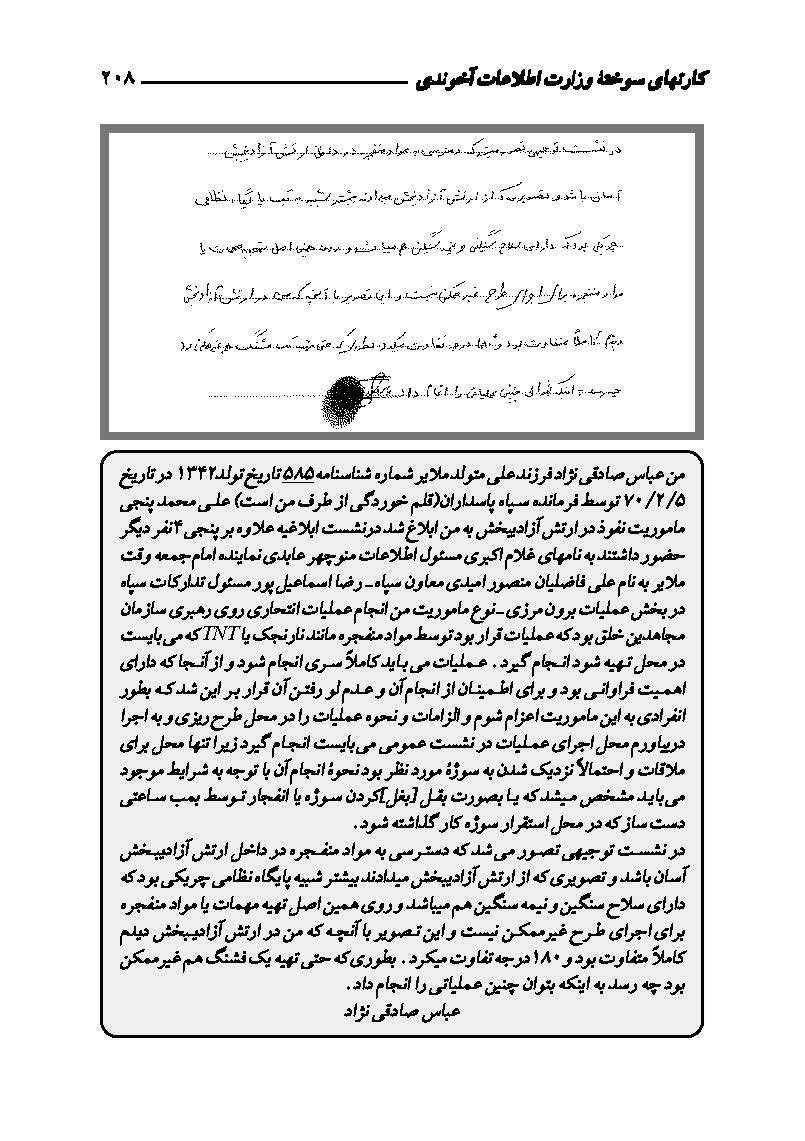 کارتهای سوختهٔ وزارت اطلاعات آخوندی ۲۰۸
در نشست توجیهی تصور میشد که دسترسی به مواد منفجره در داخل ارتش آزادیبخش
آسان باشد و تصویری که از ارتش آزادیبخش میدادند بیشتر شبیه به یک پایگاه نظامی
چریکی بود که دارای سلاح سنگین و نیمه سنگین هم میباشد و روی همین اصل تهیه مهمات یا
مواد منفجره برای اجرای طرح غیر ممکن نیست و این تصویر با آنچه که من در ارتش آزادیبخش
دیدم کاملاً متفاوت بود و ۱۸۰ درجه تفاوت میکرد بطوری که حتی تهیه یک فشنگ هم غیرممکن بود
چه رسد به اینکه بتوان چنین عملیاتی را انجام داد
من عباس صادقی نژاد فرزند علی متولد ملایر شماره شناسنامه ۵۸۵ تاریخ تولد ۱۳۴۲ در تاریخ
۷۰/۲/۵ توسط فرمانده سپاه پاسداران(قلم خوردگی از طرف من است) علی محمد پنجی
ماموریت نفوذ در ارتش آزادیبخش به من ابلاغ شد درنشست ابلاغیه علاوه بر پنجی ۴نفر دیگر
حضور داشتند به نامهای غلام اکبری مسئول اطلاعات منوچهر عابدی نماینده امام جمعه وقت
ملایر به نام علی فاضلیان منصور امیدی معاون سپاه_ رضا اسماعیل پور مسئول تدارکات سپاه
در بخش عملیات برون مرزی_نوع ماموریت من انجام عملیات انتحاری روی رهبری سازمان
مجاهدین خلق بود که عملیات قرار بود توسط مواد منفجره مانند نارنجک یا TNT که می بایست
در محل تهیه شود انجام گیرد . عملیات می باید کاملاً سری انجام شود و از آنجا که دارای
اهمیت فراوانی بود و برای اطمینان از انجام آن و عدم لو رفتن آن قرار بر این شد که بطور
انفرادی به این ماموریت اعزام شوم و الزامات و نحوه عملیات را در محل طرح ریزی و به اجرا
دربیاورم محل اجرای عملیات در نشست عمومی می بایست انجام گیرد زیرا تنها محل برای
ملاقات و احتمالاً نزدیک شدن به سوژهٔ مورد نظر بود نحوهٔ انجام آن با توجه به شرایط موجود
می باید مشخص میشد که یا بصورت بقل [بغل]کردن سوژه یا انفجار توسط بمب ساعتی
دست ساز که در محل استقرار سوژه کار گذاشته شود.
در نشست توجیهی تصور می شد که دسترسی به مواد منفجره در داخل ارتش آزادیبخش
آسان باشد و تصویری که از ارتش آزادیبخش میدادند بیشتر شبیه پایگاه نظامی چریکی بود که
دارای سلاح سنگین و نیمه سنگین هم میباشد و روی همین اصل تهیه مهمات یا مواد منفجره
برای اجرای طرح غیرممکن نیست و این تصویر با آنچه که من در ارتش آزادیبخش دیدم
کاملاً متفاوت بود و ۱۸۰ درجه تفاوت میکرد . بطوری که حتی تهیه یک فشنگ هم غیرممکن
بود چه رسد به اینکه بتوان چنین عملیاتی را انجام داد.
عباس صادقی نژاد